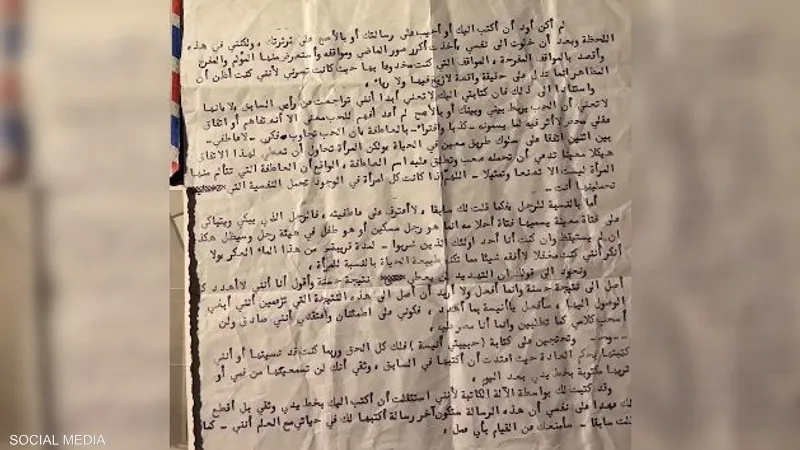 لم أكن أود أن أكتب اليك أو أجيب على رسالتك أو بالأصح على ثرثرتك ، ولكنني في هذه
اللحظة وبعد أن خلوت الى نفسي وأخذت أكرر صور الماضي ومواقفه وأستعرض منها المؤلم والمفرح
وأقصد بالمواقف المفرحة ، المواقف التي كنت مخدوعا بها حيث كانت تسرني لأنني كنت أظن أن
المظاهر انما تدل على حقيقة واقعة لا زيف فيها ولا رياء .
واستنادا الى ذلك فان كتابتي اليك لا تعني أبدا أنني تراجعت عن رأيي السابق ولا بأنها
لا تعني أن الحب يربط بيني وبينك أو بالأصح لم أعد أفهم للحب معنى الا أنه تفاهم أو اتفاق
عقلي محض لا أثر فيه لما يسمونه - كذبا وافتراء - بالعاطفة بأن الحب تجاوب فكري - لا عاطفي -
بين اثنين اتفقا على سلوك طريق معين في الحياة ولكن المرأة تحاول أن تعطي لهذا الاتفاق
هيكلا معينا تدعي أن تحمله صعب وتطلق عليه اسم العاطفة ، الواقع أن العاطفة التي تتألم منها
المرأة ليست الا تصنعا وتمثيلا - اللهم اذا كانت كل امرأة في الوجود تحمل النفسية التي
تحملينها أنت -
أما بالنسبة للرجل فكما قلت لك سابقا ، لا أعترف على عاطفيته ، فالرجل الذي يبكي ويتباكى
على فتاة معينة يسميها فتاة أحلامه انما هو رجل مسكين أو هو طفل في هيئة رجل وسيظل هكذا
ان لم يستيقظ وان كنت أنا أحد اولئك الذين شربوا - لمدة قريبة - من هذا الماء العكر ولا
أنكر أنني كنت مغفلا لا أفقه شيئا مما تكنه طبيعة الحياة بالنسبة للمرأة ،
ونعود الى قولك ان التهديد لن يعطي نتيجة حسنة وأقول أنا أنني لا أهدد
أصل الى نتيجة حسنة وانما أفعل ولا أريد أن أصل الى هذه النتيجة التي تزعمين أنني أبغي
الوصول اليها ، سأفعل يا أنيسة بما أهدد ، فكوني على اطمئنان واعتقدي أنني صادق ولن
أسحب كلامي كما تطلبين وانما أنا مصر عليه ،
وتحتجين على كتابة (حبيبتي أنيسة) فلك كل الحق وربما كنت قد نسيتها أو أنني
كتبتها بحكم العادة حيث اعتدت أن أكتبها في السابق ، وثقي أنك لن تسمعيها من فمي أو
تريها مكتوبة بخط يدي بعد اليوم .
وقد كتبت لك بواسطة الآلة الكاتبة لأنني استثقلت أن أكتب اليك بخط يدي وثقي بل أقطع
لك عهدا على نفسي أن هذه الرسالة ستكون آخر رسالة أكتبها لك في حياتي مع العلم أنني - كما
قلت سابقا - سأمنعك من القيام بأي عمل ،
SOCIAL MEDIA